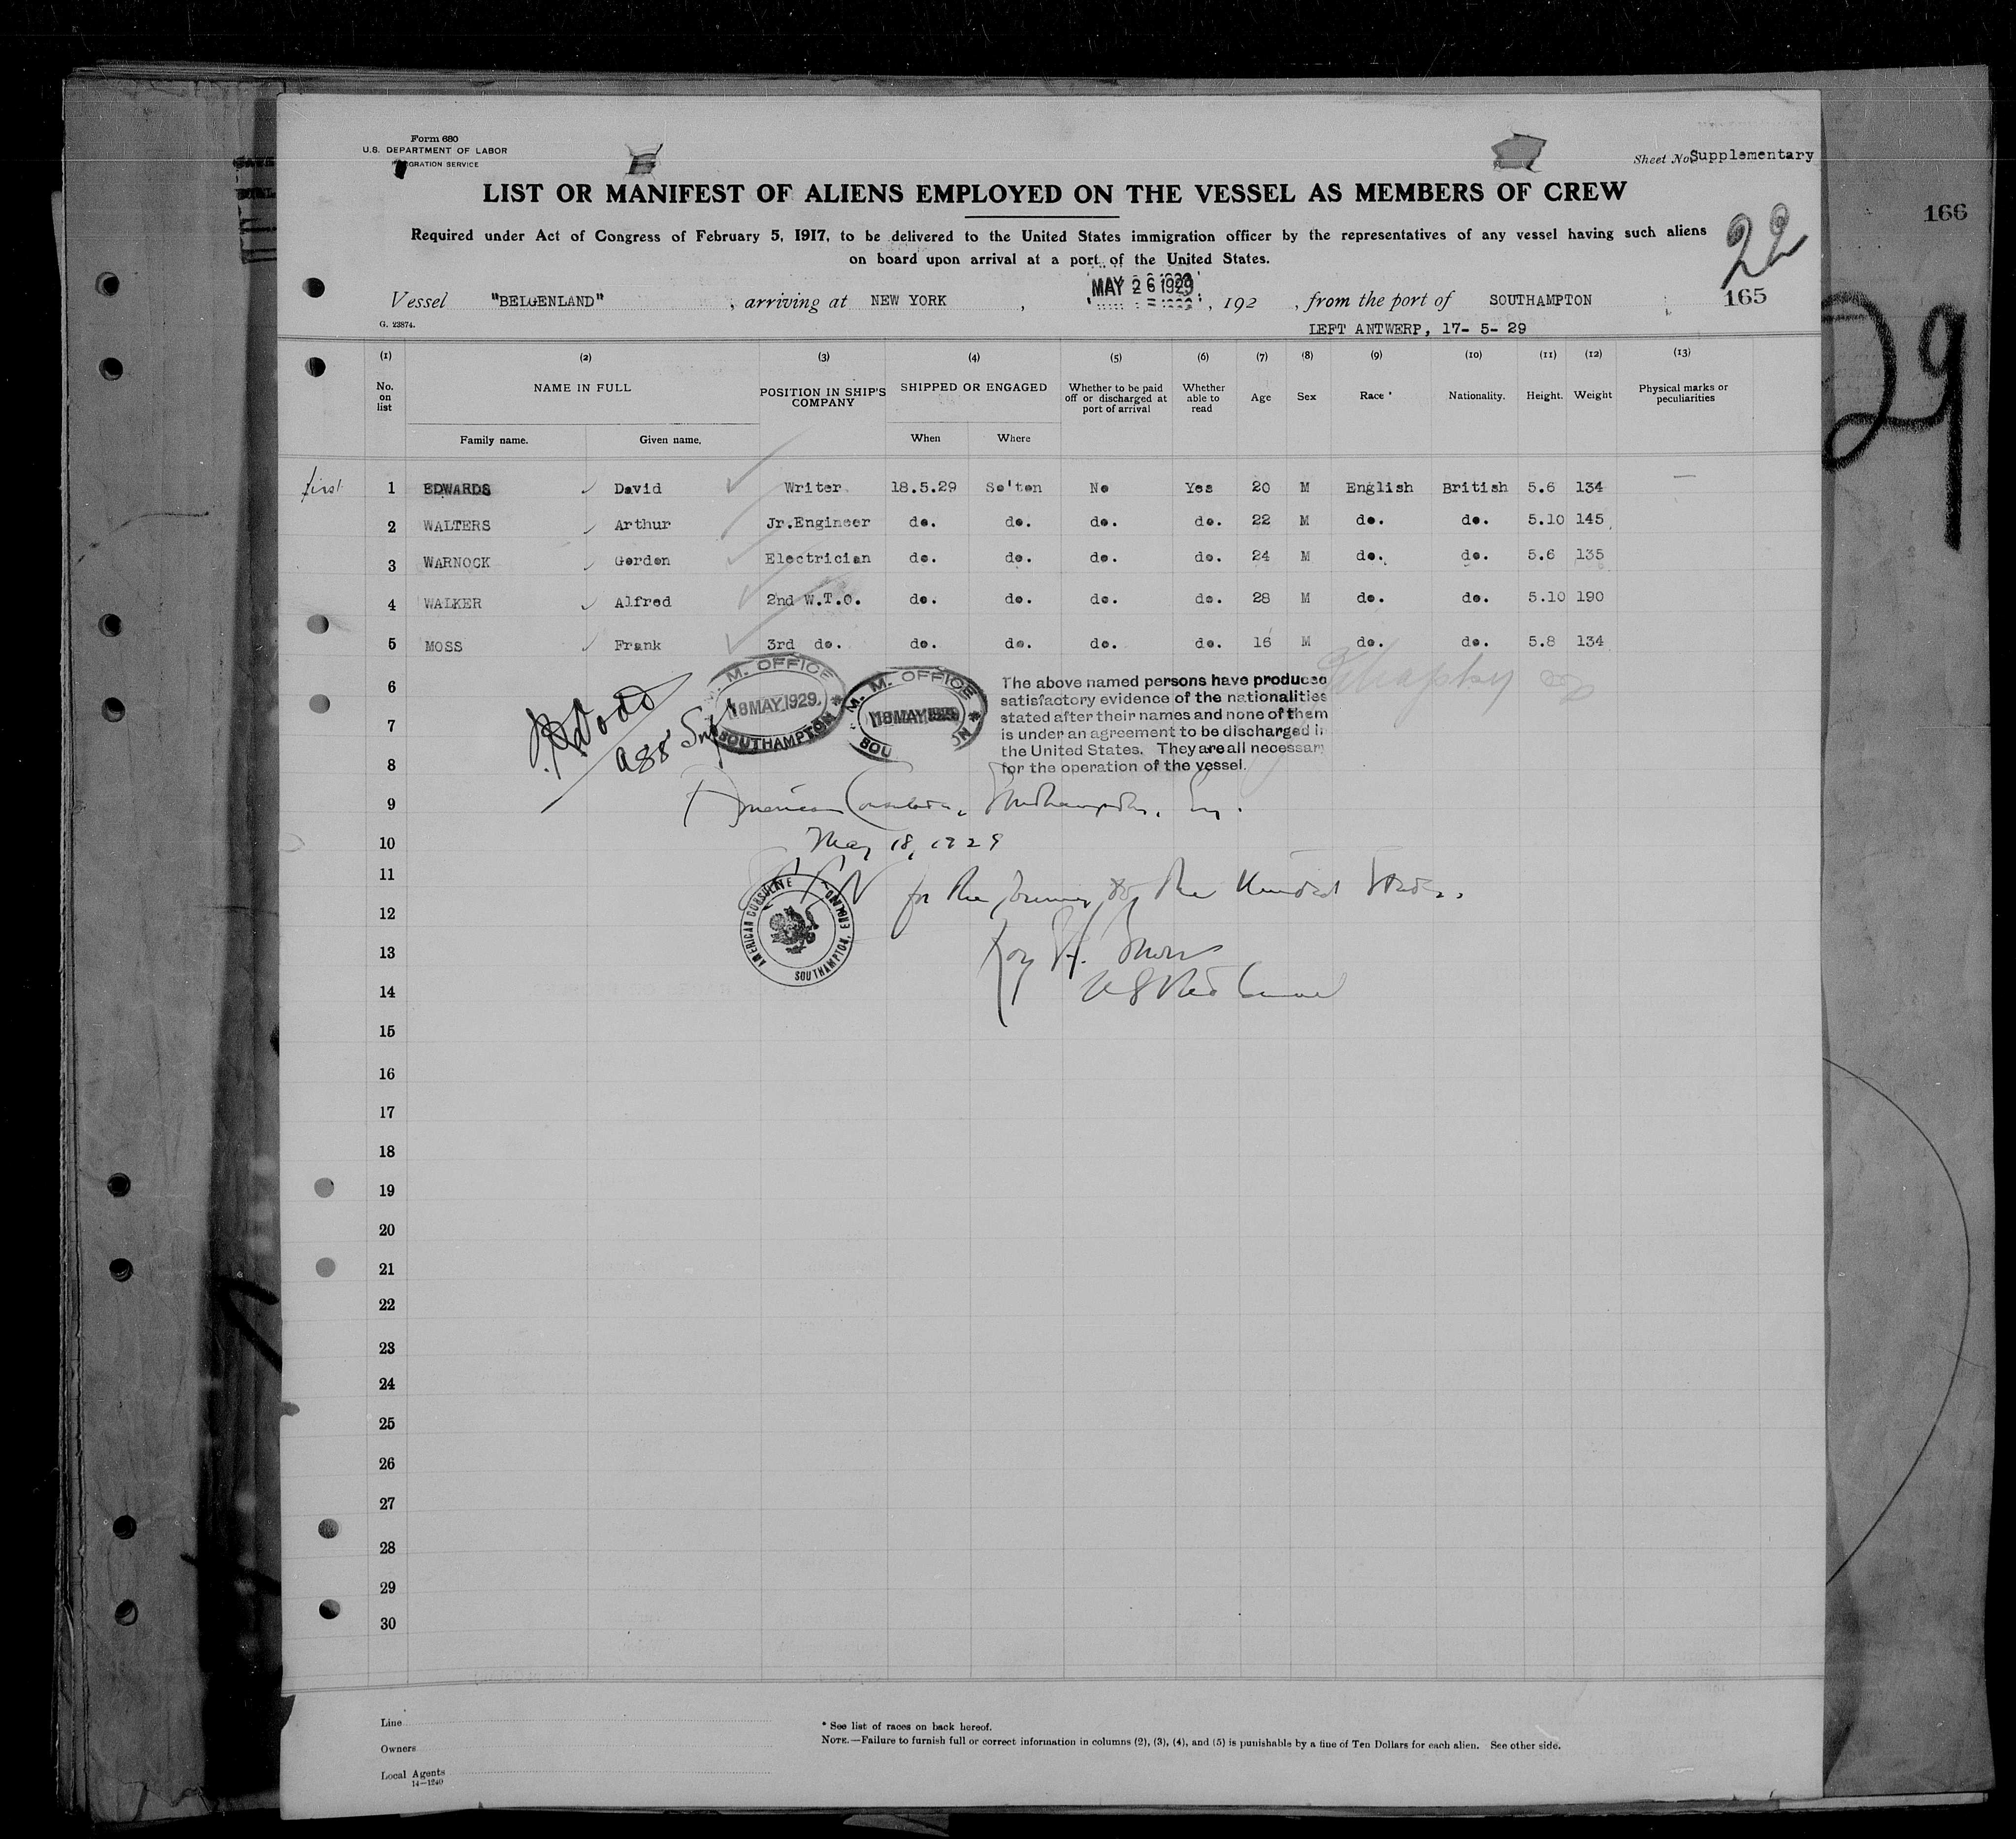 Form 680
U.S. DEPARTMENT OF LABOR
Sheet No. Supplementary
LIST OR MANIFEST OF ALIENS EMPLOYED ON THE VESSEL AS MEMBERS OF CREW
Required under Act of Congress of February 5, 1917, to be delivered to the United States immigration officer by the representatives of any vessel having such aliens
on board upon arrival at a port of the United States.
22
166
29
Vessel "BELGENLAND", arriving at NEW YORK, MAY 26 1929, 192 , from the port of SOUTHAMPTON
165
G. 23874.
LEFT ANTWERP, 17- 5- 29
(1) (2) (3) (4) (5) (6) (7) (8) (9) (10) (11) (12) (13)
No. on list NAME IN FULL POSITION IN SHIP'S COMPANY SHIPPED OR ENGAGED Whether to be paid off or discharged at port of arrival Whether able to read Age Sex Race * Nationality. Height. Weight Physical marks or peculiarities
Family name. Given name. When Where
first 1 EDWARDS David Writer 18.5.29 So'ton No Yes 20 M English British 5.6 134 —
2 WALTERS Arthur Jr.Engineer do. do. do. do. 22 M do. do. 5.10 145
3 WARNOCK Gordon Electrician do. do. do. do. 24 M do. do. 5.6 135
4 WALKER Alfred 2nd W.T.O. do. do. do. do. 28 M do. do. 5.10 190
5 MOSS Frank 3rd do. do. do. do. do. 16 M do. do. 5.8 134
M. OFFICE 18 MAY 1929 SOUTHAMPTON
M. M. OFFICE 18 MAY 1929
The above named persons have produced
satisfactory evidence of the nationalities
stated after their names and none of them
is under an agreement to be discharged in
the United States. They are all necessary
for the operation of the vessel.
6
7
8
9 American Consulate, Southampton, Eng.
10 May 18, 1929
11 for the journey to the United States.
AMERICAN CONSULATE SOUTHAMPTON, ENGLAND
12
13 Roy
14
15
16
17
18
19
20
21
22
23
24
25
26
27
28
29
30
Line
Owners
Local Agents
14—1240
* See list of races on back hereof.
NOTE.—Failure to furnish full or correct information in columns (2), (3), (4), and (5) is punishable by a fine of Ten Dollars for each alien. See other side.